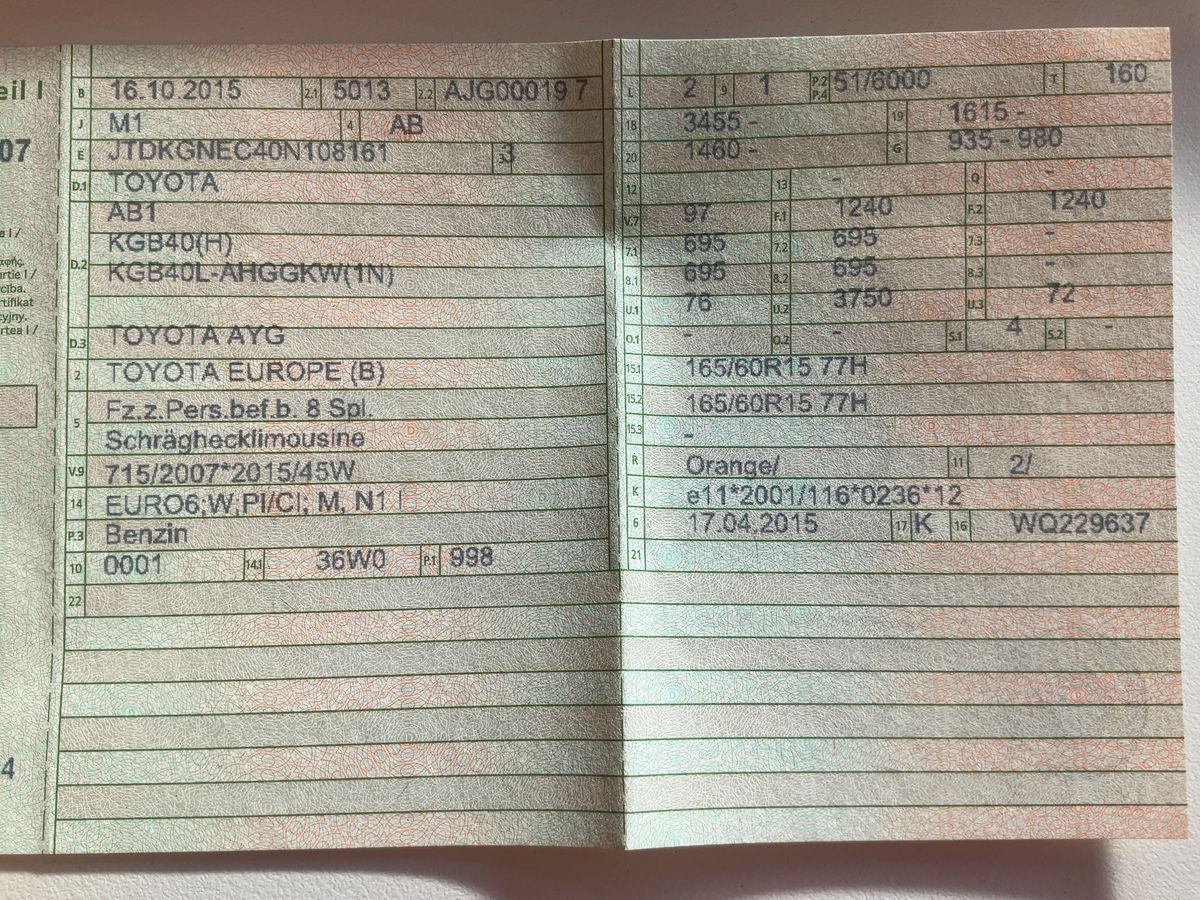 eil I
07
e I /
αφής
artie I /
cība.
rtifikat
cyjny.
rtea I /
4
B 16.10.2015 2.1 5013 2.2 AJG000197
J M1 4 AB
E JTDKGNEC40N108161 3 3
D.1 TOYOTA
AB1
D.2 KGB40(H)
KGB40L-AHGGKW(1N)
D.3 TOYOTA AYG
2 TOYOTA EUROPE (B)
5 Fz.z.Pers.bef.b. 8 Spl.
Schräghecklimousine
V.9 715/2007*2015/45W
14 EURO6;W;PI/CI; M, N1 I
P.3 Benzin
10 0001 14.1 36W0 P.1 998
22
L 2 9 1 P.2 P.4 51/6000 T 160
18 3455 - 19 1615 -
20 1460 - G 935 - 980
12 13 - Q -
V.7 97 F.1 1240 F.2 1240
7.1 695 7.2 695 7.3 -
8.1 695 8.2 695 8.3 -
U.1 76 U.2 3750 U.3 72
O.1 - O.2 - S.1 4 S.2 -
15.1 165/60R15 77H
15.2 165/60R15 77H
15.3 -
R Orange/ 11 2/
K e11*2001/116*0236*12
6 17.04.2015 17 K 16 WQ229637
21